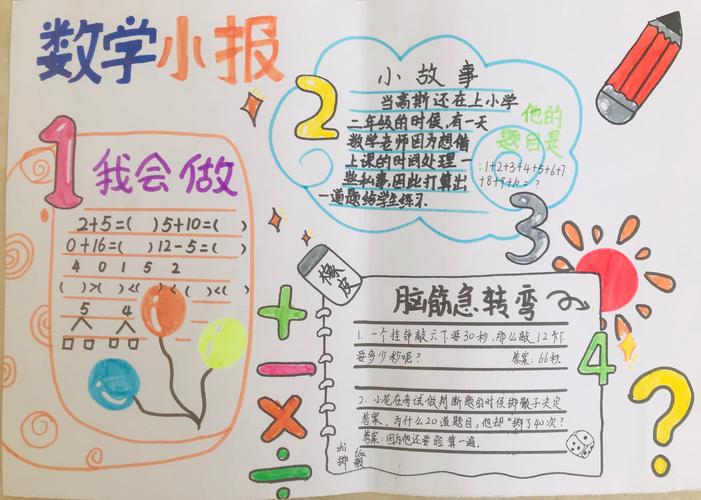 数学小报
1
我会做
2+5=( ) 5+10=( )
0+16=( ) 12-5=( )
4 0 1 5 2
( )>( )<( )<( )<( )
5 4
2
小故事
当高斯还在上小学
二年级的时候,有一天
数学老师因为想借
上课的时间处理一
些私事.因此打算出
一道题给学生练习.
他的
题目是
:1+2+3+4+5+6+7
+8+9+10=?
3
橡皮
脑筋急转弯
1.一个挂钟敲六下要30秒,那么敲12下
要多少秒呢? 答案:66秒.
2.小龙在考试做判断题的时候掷骰子决定
答案,为什么20道题目,他却"掷了40次?
答案:因为他还要验算一遍.
zhì tóu
掷 骰
4
+
−
×
÷
?